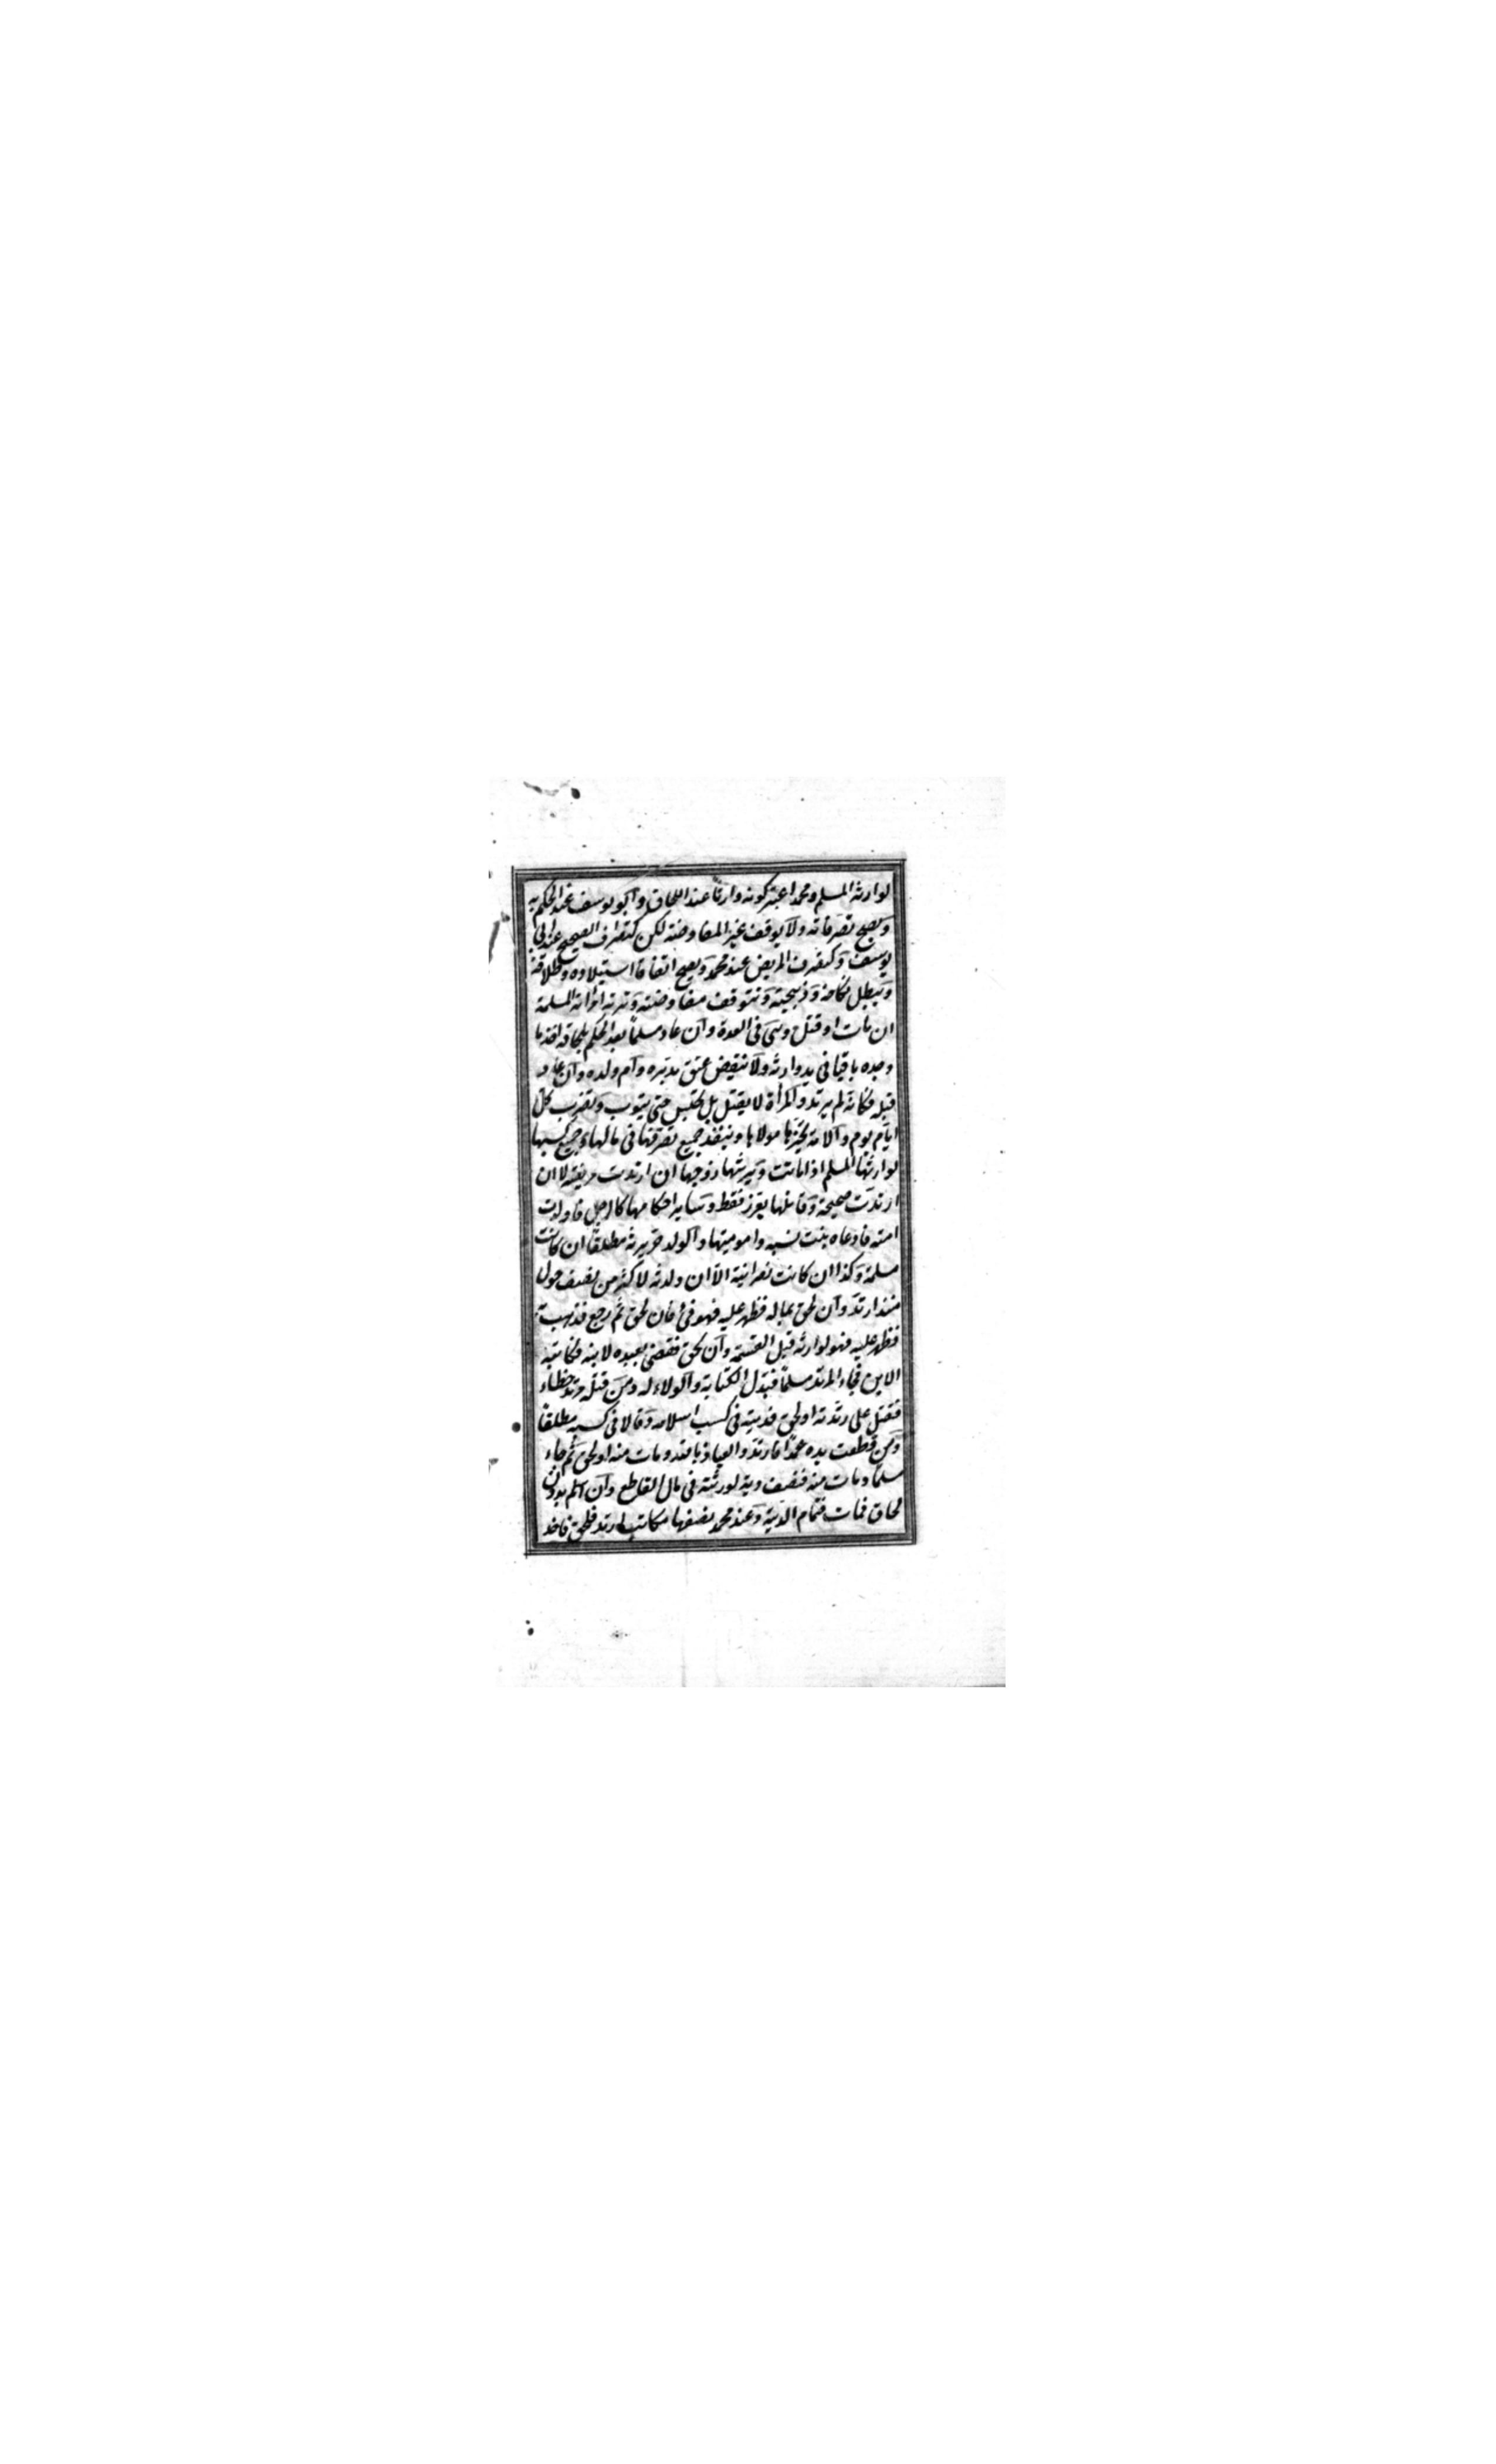 لوارثه المسلم ومحمد اعتبر كونه وارثا عند اللحاق وابو يوسف عند الحكم به
ويصح تصرفاته ولا يوقف غير المفاوضة لكن كتصرف الصحيح عند ابي
يوسف وكتصرف المريض عند محمد ويصح اتفاقا استيلاده وطلاقه
ويبطل نكاحه وذبيحته وتتوقف مفاوضته وترثه امرأته المسلمة
ان مات او قتل وهي في العدة وان عاد مسلما بعد الحكم بلحاقه اخذ ما
وجده باقيا في يد وارثه ولا ننقض عتق مدبره وام ولده وان عاد
قبله فكانه لم يرتد والمرأة لا يقتل بل تحبس حتى يتوب وتضرب كل
ايام يوم والامة يجبرها مولاها وينفذ جميع تصرفها في مالها وجميع كسبها
لوارثها المسلم اذا ماتت ويرثها زوجها ان ارتدت مريضة لا ان
ارتدت صحيحة وقاتلها يعزر فقط وسائر احكامها كالرجل فان ولدت
امته فادعاه يثبت نسبه واموميتها والولد حر يرثه مطلقا ان كانت
مسلمة وكذا ان كانت نصرانية الا ان ولدته لاكثر من نصف حول
منذ ارتد وان لحق بماله فظهر عليه فهو فئ فان لحق ثم رجع فذهب به
فظهر عليه فهو لوارثه قبل القسمة وان لحق فقضى بعبده لابنه فكاتبه
الابن فجاء المرتد مسلما فبدل الكتابة والولاء له ومن قتله مرتد خطاء
فقتل على ردته او لحق فديته في كسب اسلامه وقالا في كسبه مطلقا
ومن قطعت يده عمدا فارتد والعياذ بالله ومات منه او لحق ثم جاء
مسلما ومات منه فنصف دية لورثته في مال القاطع وان اسلم بدون
لحاق فمات فتمام الدية وعند محمد نصفها مكاتب ارتد فلحق فاخذ